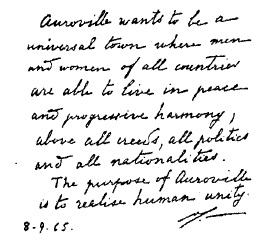 Auroville wants to be a
universal town where men
and women of all countries
are able to live in peace
and progressive harmony,
above all creeds, all politics
and all nationalities.
The purpose of Auroville
is to realise human unity.
8-9.65.